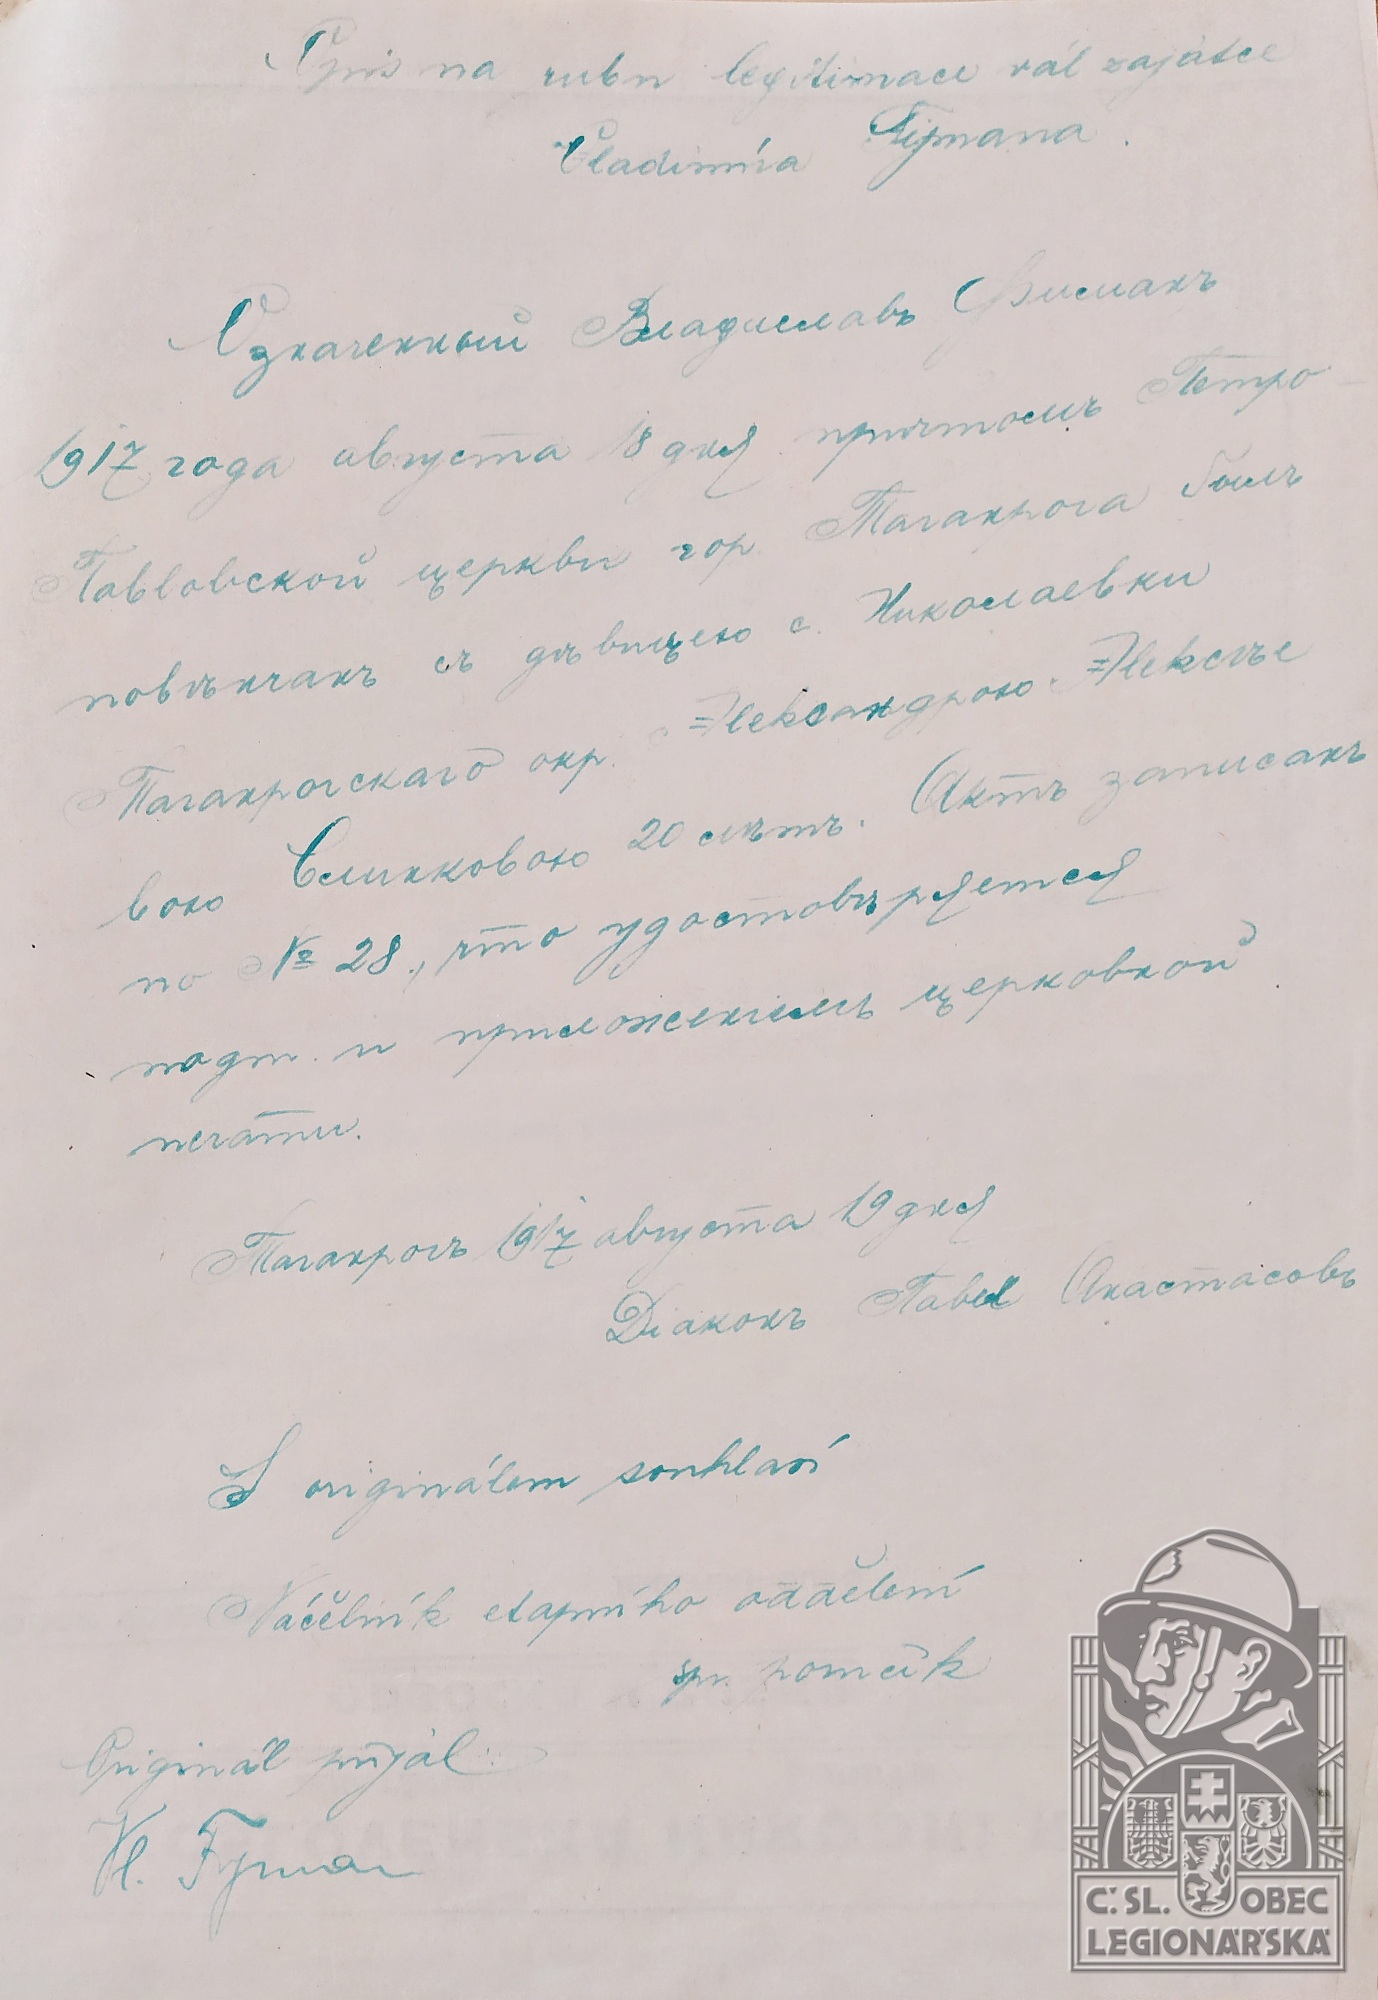 Opis na rubu legitimace vál zajatce
Vladimíra Fijmana.
Означенный Владиславъ Фиманъ
1917 года августа 18 дня причтомъ Петро-
Павловской церкви гор. Таганрога былъ
повѣнчанъ съ дѣвицею с. Николаевки
Таганрогскаго окр. Александрою Алексѣе
вою Слинковою 20 лѣтъ. Актъ записанъ
по № 28, что удостовѣряется
подп. и приложенiемъ церковной
печати.
Таганрогъ 1917 августа 19 дня
Дiаконъ Павел Анастасовъ
S originálem souhlasí
Náčelník etapního oddělení
Originál přijal:
Vl. Fijman
Č. SL. OBEC
LEGIONÁŘSKÁ